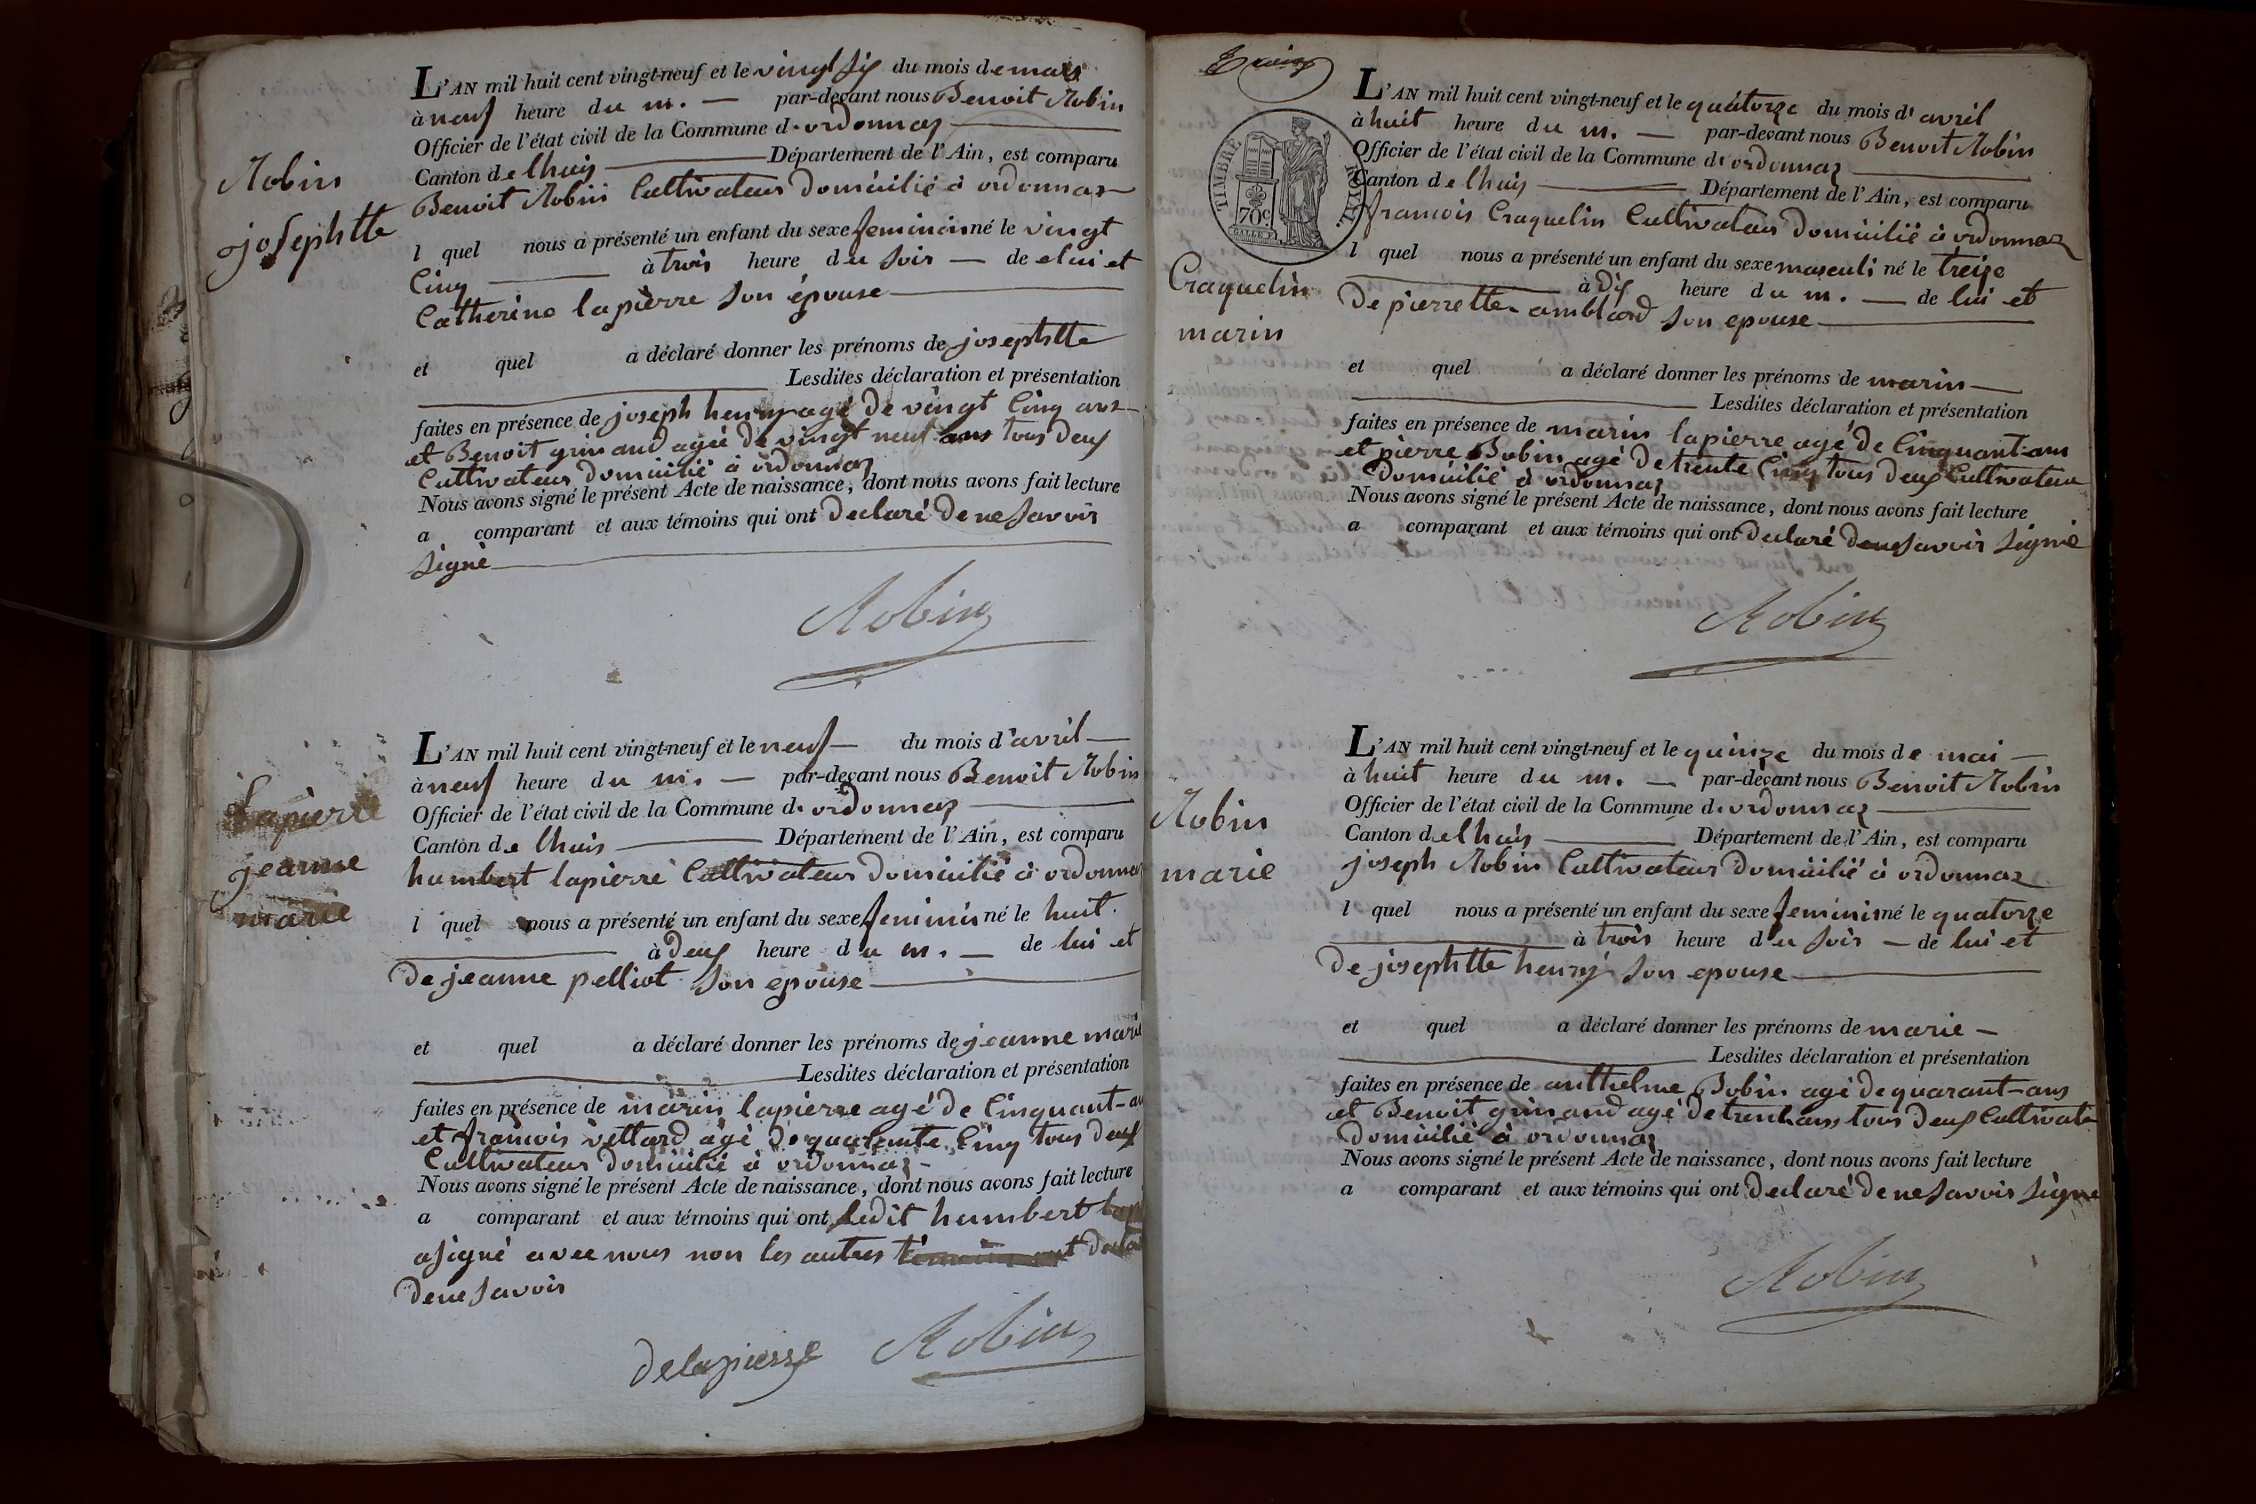 L'AN mil huit cent vingt-neuf et le vingt six du mois de mars
à neuf heure du m. — par-devant nous Benoit Robin
Officier de l'état civil de la Commune d. ordonnaz
Canton de lhuis Département de l'Ain, est comparu
Benoit Robin Cultivateur domicilié à ordonnaz
Robin
josephtte
l quel nous a présenté un enfant du sexe feminin né le vingt
Cinq à trois heure du soir — de elui et
Catherine lapierre son épouse
et quel a déclaré donner les prénoms de josephtte
Lesdites déclaration et présentation
faites en présence de joseph henry agé de vingt Cinq ans
et Benoit grinand agée de vingt neuf ans tous deux
Cultivateur domicilié à ordonnaz
Nous avons signé le présent Acte de naissance, dont nous avons fait lecture
a comparant et aux témoins qui ont declaré de ne savoir
signé
Robin
L'AN mil huit cent vingt-neuf et le neuf — du mois d'avril —
à neuf heure du m. — par-devant nous Benoit Robin
Officier de l'état civil de la Commune d. ordonnaz
Canton de lhuis Département de l'Ain, est comparu
humbert lapierre Cultivateur domicilié à ordonnaz
Lapierre
jeanne
marie
l quel nous a présenté un enfant du sexe feminin né le huit.
à deux heure du m. — de lui et
de jeanne pelliot son epouse
et quel a déclaré donner les prénoms de jeanne marie
Lesdites déclaration et présentation
faites en présence de marin lapierre agé de Cinquant-an
et francois vettard agé de quarente Cinq tous deux
Cultivateur domicilié à ordonnaz
Nous avons signé le présent Acte de naissance, dont nous avons fait lecture
a comparant et aux témoins qui ont ledit humbert
asigné avec nous non les autres
de ne savoir
delapierre Robin
TIMBRE ROYAL
70c
L'AN mil huit cent vingt-neuf et le quatorze du mois d'avril
à huit heure du m. — par-devant nous Benoit Robin
Officier de l'état civil de la Commune d. ordonnaz
Canton de lhuis Département de l'Ain, est comparu
francois Craquelin Cultivateur domicilié à ordonnaz
Craquelin
marin
l quel nous a présenté un enfant du sexe masculi né le treize
à dix heure du m. — de lui et
de pierrette amblard son epouse
et quel a déclaré donner les prénoms de marin
Lesdites déclaration et présentation
faites en présence de marin lapierre agé de Cinquant-ans
et pierre Bobin agé de trente Cinq tous deux Cultivateur
domicilié à ordonnaz
Nous avons signé le présent Acte de naissance, dont nous avons fait lecture
a comparant et aux témoins qui ont declaré de ne savoir signé
Robin
L'AN mil huit cent vingt-neuf et le quinze du mois de mai —
à huit heure du m. — par-devant nous Benoit Robin
Officier de l'état civil de la Commune d. ordonnaz
Canton de lhuis Département de l'Ain, est comparu
joseph Robin Cultivateur domicilié à ordonnaz
Robin
marie
l quel nous a présenté un enfant du sexe feminin né le quatorze
à trois heure du soir — de lui et
de josephtte henry son epouse
et quel a déclaré donner les prénoms de marie —
Lesdites déclaration et présentation
faites en présence de anthelme Bobin agé de quarant-ans
et Benoit grinand agé de trentans tous deux Cultivate
domicilié à ordonnaz
Nous avons signé le présent Acte de naissance, dont nous avons fait lecture
a comparant et aux témoins qui ont declaré de ne savoir signe
Robin